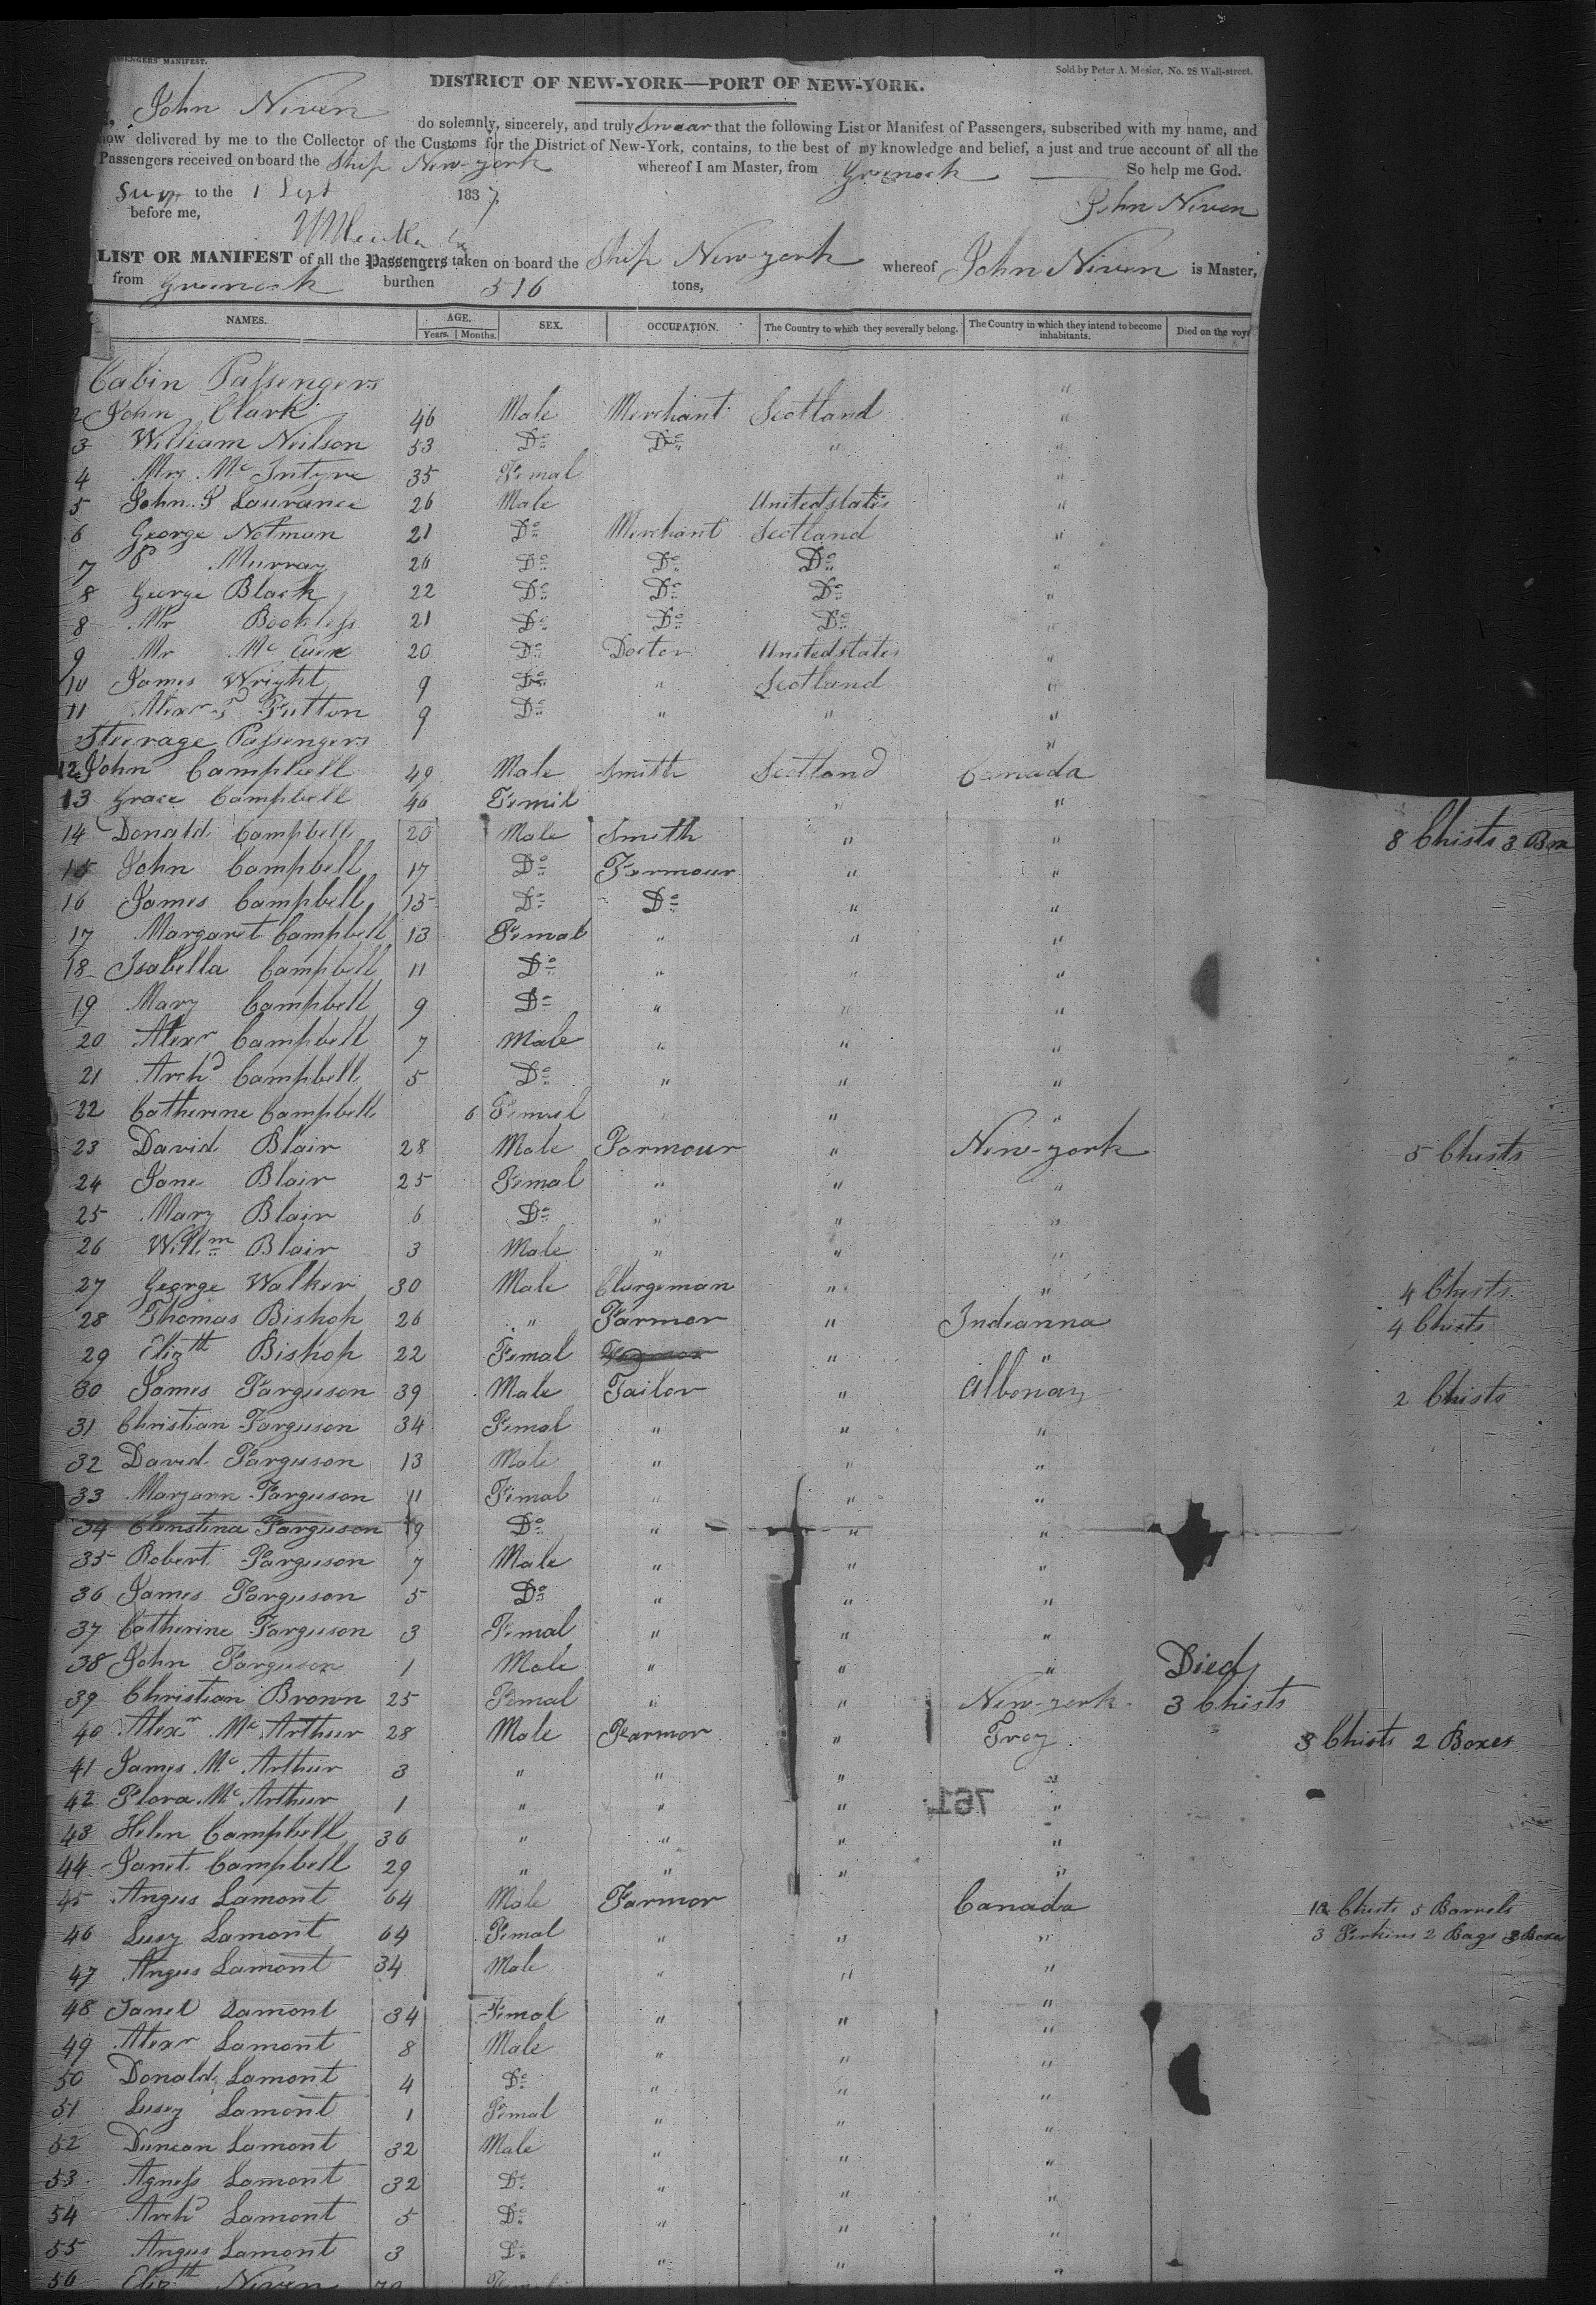 PASSENGERS MANIFEST.
Sold by Peter A. Mesier, No. 28 Wall-street.
DISTRICT OF NEW-YORK—PORT OF NEW-YORK.
John Niven do solemnly, sincerely, and truly Swear that the following List or Manifest of Passengers, subscribed with my name, and
now delivered by me to the Collector of the Customs for the District of New-York, contains, to the best of my knowledge and belief, a just and true account of all the
Passengers received on board the Ship New-york whereof I am Master, from Greenock So help me God.
to the 1 Sept 1837
before me,
John Niven
LIST OR MANIFEST of all the Passengers taken on board the Ship New-york whereof John Niven is Master,
from Greenock burthen 516 tons,
NAMES. AGE. SEX. OCCUPATION. The Country to which they severally belong. The Country in which they intend to become inhabitants. Died on the voy
Years. Months.
Cabin Passengers "
2 John Clark 46 Male Merchant Scotland "
3 William Neilson 53 Do Do " "
4 Mrs Mc Intyre 35 Femal "
5 John. P Laurance 26 Male Unitedstates "
6 George Notman 21 Do Merchant Scotland "
7 P Murray 26 Do Do Do "
8 George Black 22 Do Do Do "
8 Mr 21 Do Do Do "
9 Mr Mc 20 Do Doctor Unitedstates "
10 James Wright 9 Do " Scotland "
11 Alexr Fulton 9 Do " " "
Steerage Passengers "
12 John Campbell 49 Male Smith Scotland Canada
13 Grace Campbell 46 Femil " "
14 Donald Campbell 20 Male Smith " " 8 Chists 3 Box
15 John Campbell 17 Do Farmour " "
16 James Campbell 15 Do Do " "
17 Margaret Campbell 13 Femal " " "
18 Isabella Campbell 11 Do " " "
19 Mary Campbell 9 Do " " "
20 Alexr Campbell 7 Male " " "
21 Archd Campbell 5 Do " " "
22 Catherine Campbell 6 Femal " " "
23 David Blair 28 Male Farmour " New-york 5 Chists
24 Jane Blair 25 Femal " " "
25 Mary Blair 6 Do " " "
26 Willm Blair 3 Male " " "
27 George Walker 30 Male Clurgeman " " 4 Chists
28 Thomas Bishop 26 " Farmor " Indianna 4 Chists
29 Elizth Bishop 22 Femal " "
30 James Farguson 39 Male Tailor " Albonay 2 Chists
31 Christian Farguson 34 Femal " " "
32 David Farguson 13 Male " " "
33 Maryann Farguson 11 Fimal " " "
34 Christina Farguson 9 Do " " "
35 Robert Farguson 7 Male " " "
36 James Farguson 5 Do " " "
37 Catherine Farguson 3 Femal " " "
38 John Farguson 1 Male " " " Died
39 Christian Brown 25 Femal " " New-york 3 Chists
40 Alexr Mc Arthur 28 Male Farmor " Troy 3 Chists 2 Boxes
41 James Mc Arthur 3 " " " "
42 Flora Mc Arthur 1 " " " "
761
43 Helen Campbell 36 " " " "
44 Janet Campbell 29 " " " "
45 Angus Lamont 64 Male Farmor Canada 12 Chists 5 Barrels
46 Lusy Lamont 64 Femal " " " 3 Firkins 2 Bags 3 Boxes
47 Angus Lamont 34 Male " " "
48 Janet Lamont 34 Femal " " "
49 Alexr Lamont 8 Male " " "
50 Donald Lamont 4 Do " " "
51 Lusey Lamont 1 Femal " " "
52 Duncan Lamont 32 Male " " "
53 Agness Lamont 32 Do " " "
54 Archd Lamont 5 Do " " "
55 Angus Lamont 3 Do " " "
56 Elizth Niven